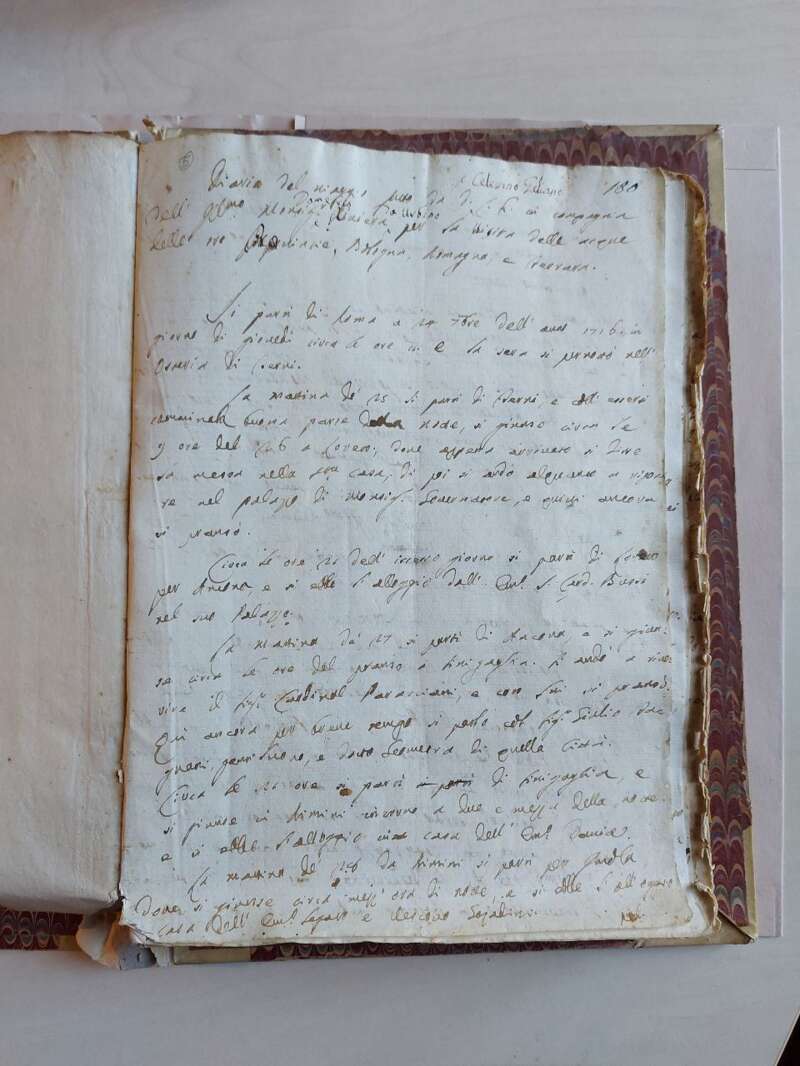 6
P. Celestino Galiani
180
Diario del viaggio fatto da D. C. G. in compagnia
dell' Illmo Monsigr Riviera per la visita delle acque
delle tre Bologna, Romagna, e Ferrara.
Si partì di Roma a 24 7bre dell' anno 1716 in
giorno di giovedì circa le ore e la sera si pernottò nell'
Osteria di
La mattina de' 25 si partì di e dell' essersi
camminata buona parte della notte, si giunse circa le
9 ore del 26 a Loreto; dove appena arrivato si disse
la messa nella Sta Casa, di poi si andò alquanto a riposa
re nel palazzo di Monsigr Governatore, e quivi ancora
si pranzò.
Circa le ore 21 dell' istesso giorno si partì di Loreto
per Ancona, e si ebbe l'alloggio dall' Emo S. Card. Bussi
nel suo Palazzo.
La mattina de' 27 si partì di Ancona e si giun-
se circa le ore del pranzo a Sinigaglia. Si andò a rive-
rire il Sigr Cardinal Paracciani, e con lui si pranzò.
Qui ancora per breve tempo si parlò col Sigr Giulio Fac
gnani, gentiluomo, e dotto Geometra di quella Città.
Circa le 21 ore si partì di Sinigaglia, e
si giunse in Rimini intorno a due e mezza della notte
e si ebbe l'alloggio in casa dell' Emo Davia.
La mattina de' 28 da Rimini si partì per Imola
Dove si giunse circa mezz' ora di notte, e si ebbe l'alloggio
casa dell' Emo Legato e Vescovo